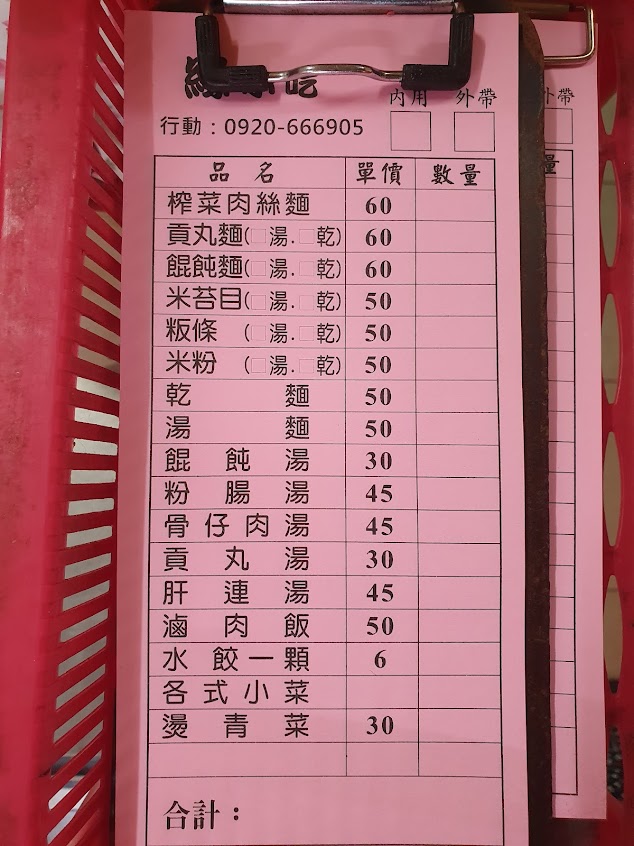 小吃
內用 外帶
行動：0920-666905
品名 單價 數量
榨菜肉絲麵 60
貢丸麵(□湯.□乾) 60
餛飩麵(□湯.□乾) 60
米苔目(□湯.□乾) 50
粄條 (□湯.□乾) 50
米粉 (□湯.□乾) 50
乾麵 50
湯麵 50
餛飩湯 30
粉腸湯 45
骨仔肉湯 45
貢丸湯 30
肝連湯 45
滷肉飯 50
水餃一顆 6
各式小菜
燙青菜 30
合計：
外帶
量